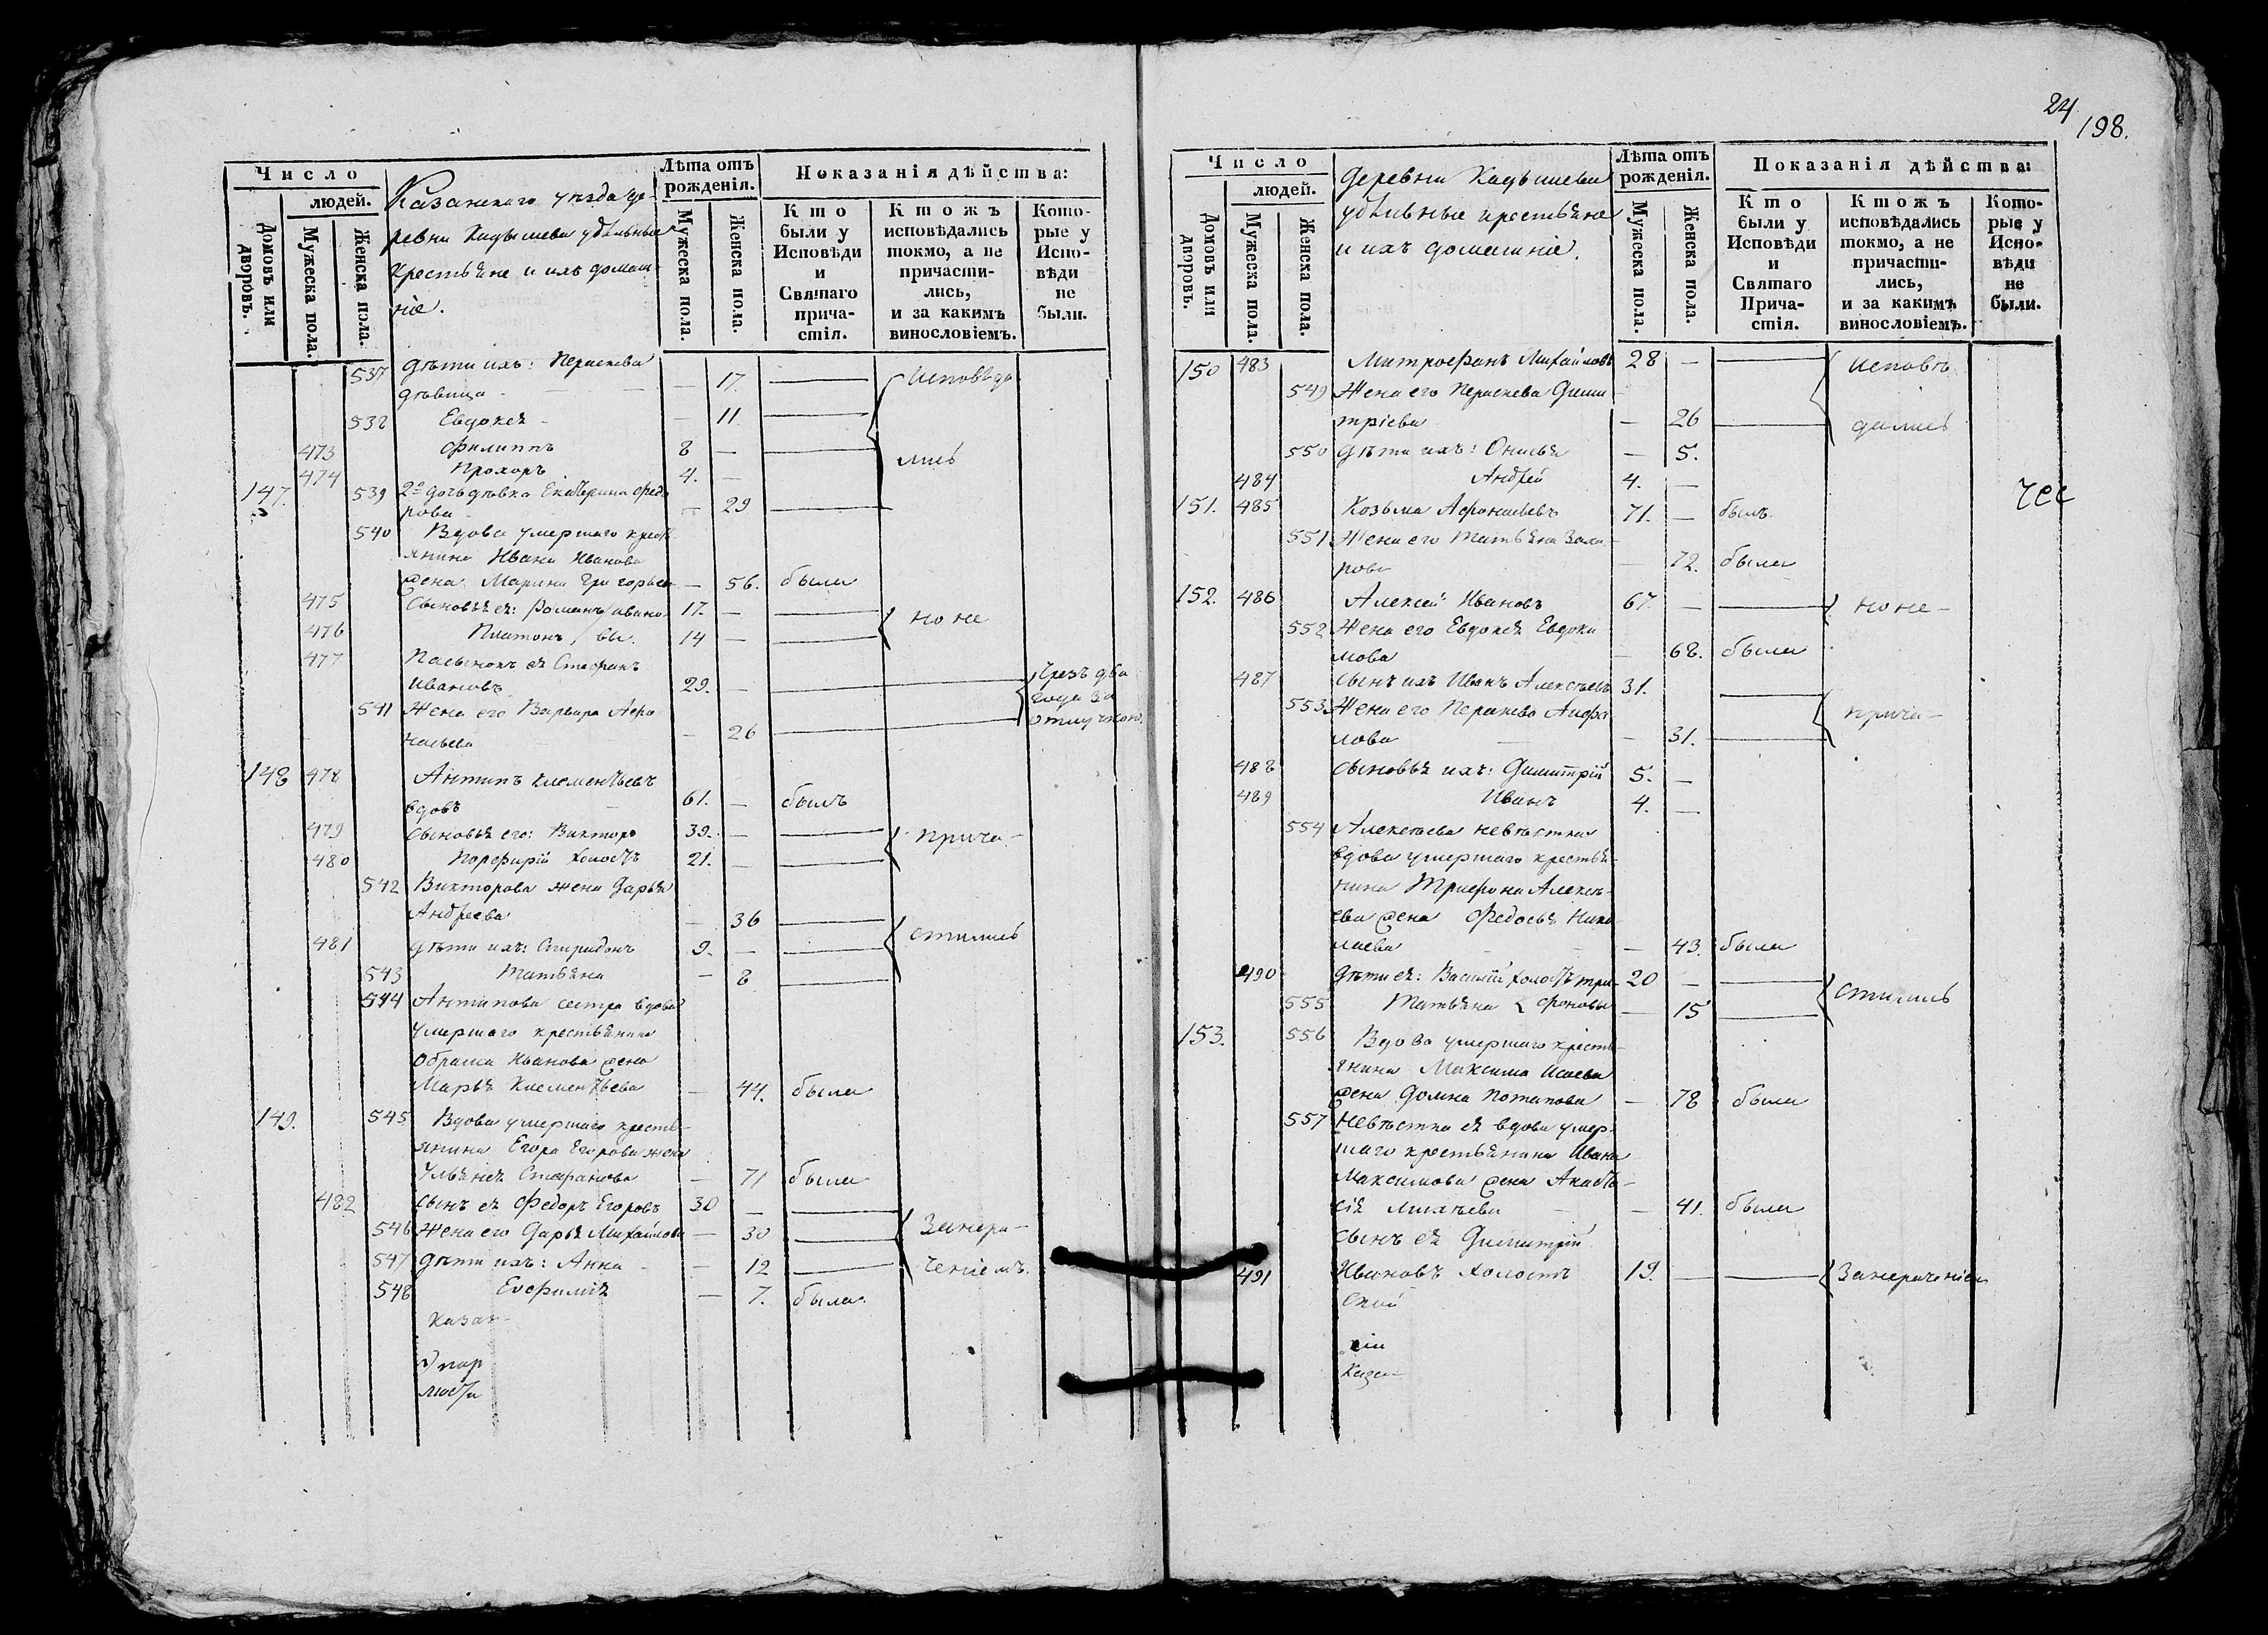 24
198.
Число
людей.
Домовъ или дворовъ.
Мужеска пола.
Женска пола.
Казанскаго уѣзда де-
ревни Кадышева удѣльные
крестьяне и ихъ домаш-
ніе.
Лѣта отъ рожденія.
Мужеска пола.
Женска пола.
Показанія дѣйства:
Кто были у Исповѣди и Святаго причастія.
Ктожъ исповѣдались токмо, а не причасти-лись, и за какимъ винословіемъ.
Кото-рые у Испо-вѣди не были.
537 дѣти ихъ: Параскева
дѣвица - — 17. — Исповѣда
538 Евдокія - — 11 —
473 Филиппъ 8 — —
474 Прохоръ 4. — лись
147. 539 2я дочь дѣвка Екатерина Федо
рова - — 29 —
540 Вдова умершаго крест
янина Ивана Иванова
жена Марина Григорьева — 56. была
475 Сыновья ея: Романъ Ивано 17. — — но не
476 Платонъ вы. 14 — —
477 Пасынокъ ея Стефанъ
Ивановъ 29. — — Чрезъ два
года за
отлучкою.
541 Жена его Варвара Афо
насьева — 26 —
148 478 Антипъ Клементьевъ
вдовъ 61. — былъ
479 Сыновья его: Викторъ 39. — — прича-
480 Порфирій холостъ 21. — —
542 Викторова жена Дарья
Андреева — 36 — стились
481 дѣти ихъ: Спиридонъ 9. — —
543 Татьяна — 8 —
544 Антипова сестра вдова
умершаго крестьянина
Иванова жена
Марья Клементьева — 44. была
149. 545 Вдова умершаго кресть-
янина Егора Егорова жена
Ульяна Стефанова — 71 была
482 сынъ ея Федоръ Егоровъ 30 — —
546 Жена его Дарья Михайлова — 30 — Занера-
547 дѣти ихъ: Анна - — 12 — ченіемъ.
548 Евфимія — 7. была.
Казан-
Число
людей.
Домовъ или дворовъ.
Мужеска пола.
Женска пола.
Деревни Кадышева
удѣльные крестьяне
и ихъ домашніе.
Лѣта отъ рожденія.
Мужеска пола.
Женска пола.
Показанія дѣйства:
Кто были у Исповѣди и Святаго Прича-стія.
Ктожъ исповѣдались токмо, а не причасти-лись, и за какимъ винословіемъ.
Кото-рые у Испо-вѣди не были.
150 483 Митрофанъ Михайловъ 28 — — исповѣ
549 Жена его Параскева Дими
тріева — 26 — дались
550 дѣти ихъ: Онисья — 5.
484 Андрей 4. —
151. 485 Козьма Афонасьевъ 71. — былъ.
551 Жена его Татьяна Заха
рова — 72. была
152. 486 Алексей Ивановъ 67. — — но не -
552 Жена его Евдокія Евдоки
мова — 68. была
487 сынъ ихъ Иванъ Алексѣевъ 31. —
553 Жена его Параскева
лова — 31. — прича-
488 сыновья ихъ: Димитрій 5. —
489 Иванъ 4. —
554 Алексеева невѣстка
вдова умершаго крестья-
нина Трифона Алексѣ-
ева жена Федосья Нико
лаева — 43. была
490 дѣти ея: Василій холостъ Три- 20 — —
555 Татьяна фоновы — 15 — стились
153. 556 Вдова умершаго кресть-
янина Максима Исаева
жена Домна Потапова — 78 была
557 Невѣстка ея вдова умер-
шаго крестьянина Ивана
Максимова жена Анаста-
сія — 41. была
сынъ ея Димитрій
491 Ивановъ холостъ 19. — — Занераченіемъ
ской
Каза-